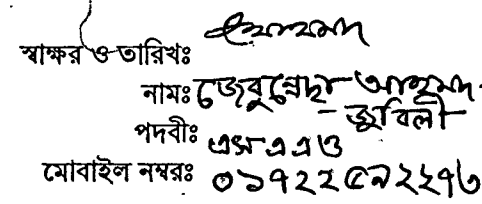 স্বাক্ষর ও তারিখঃ আহমদ
নামঃ জেবুন্নেছা আহমদ
- জুবিলী
পদবীঃ এসএএও
মোবাইল নম্বরঃ ০১৭২২৫৯২২৭৬